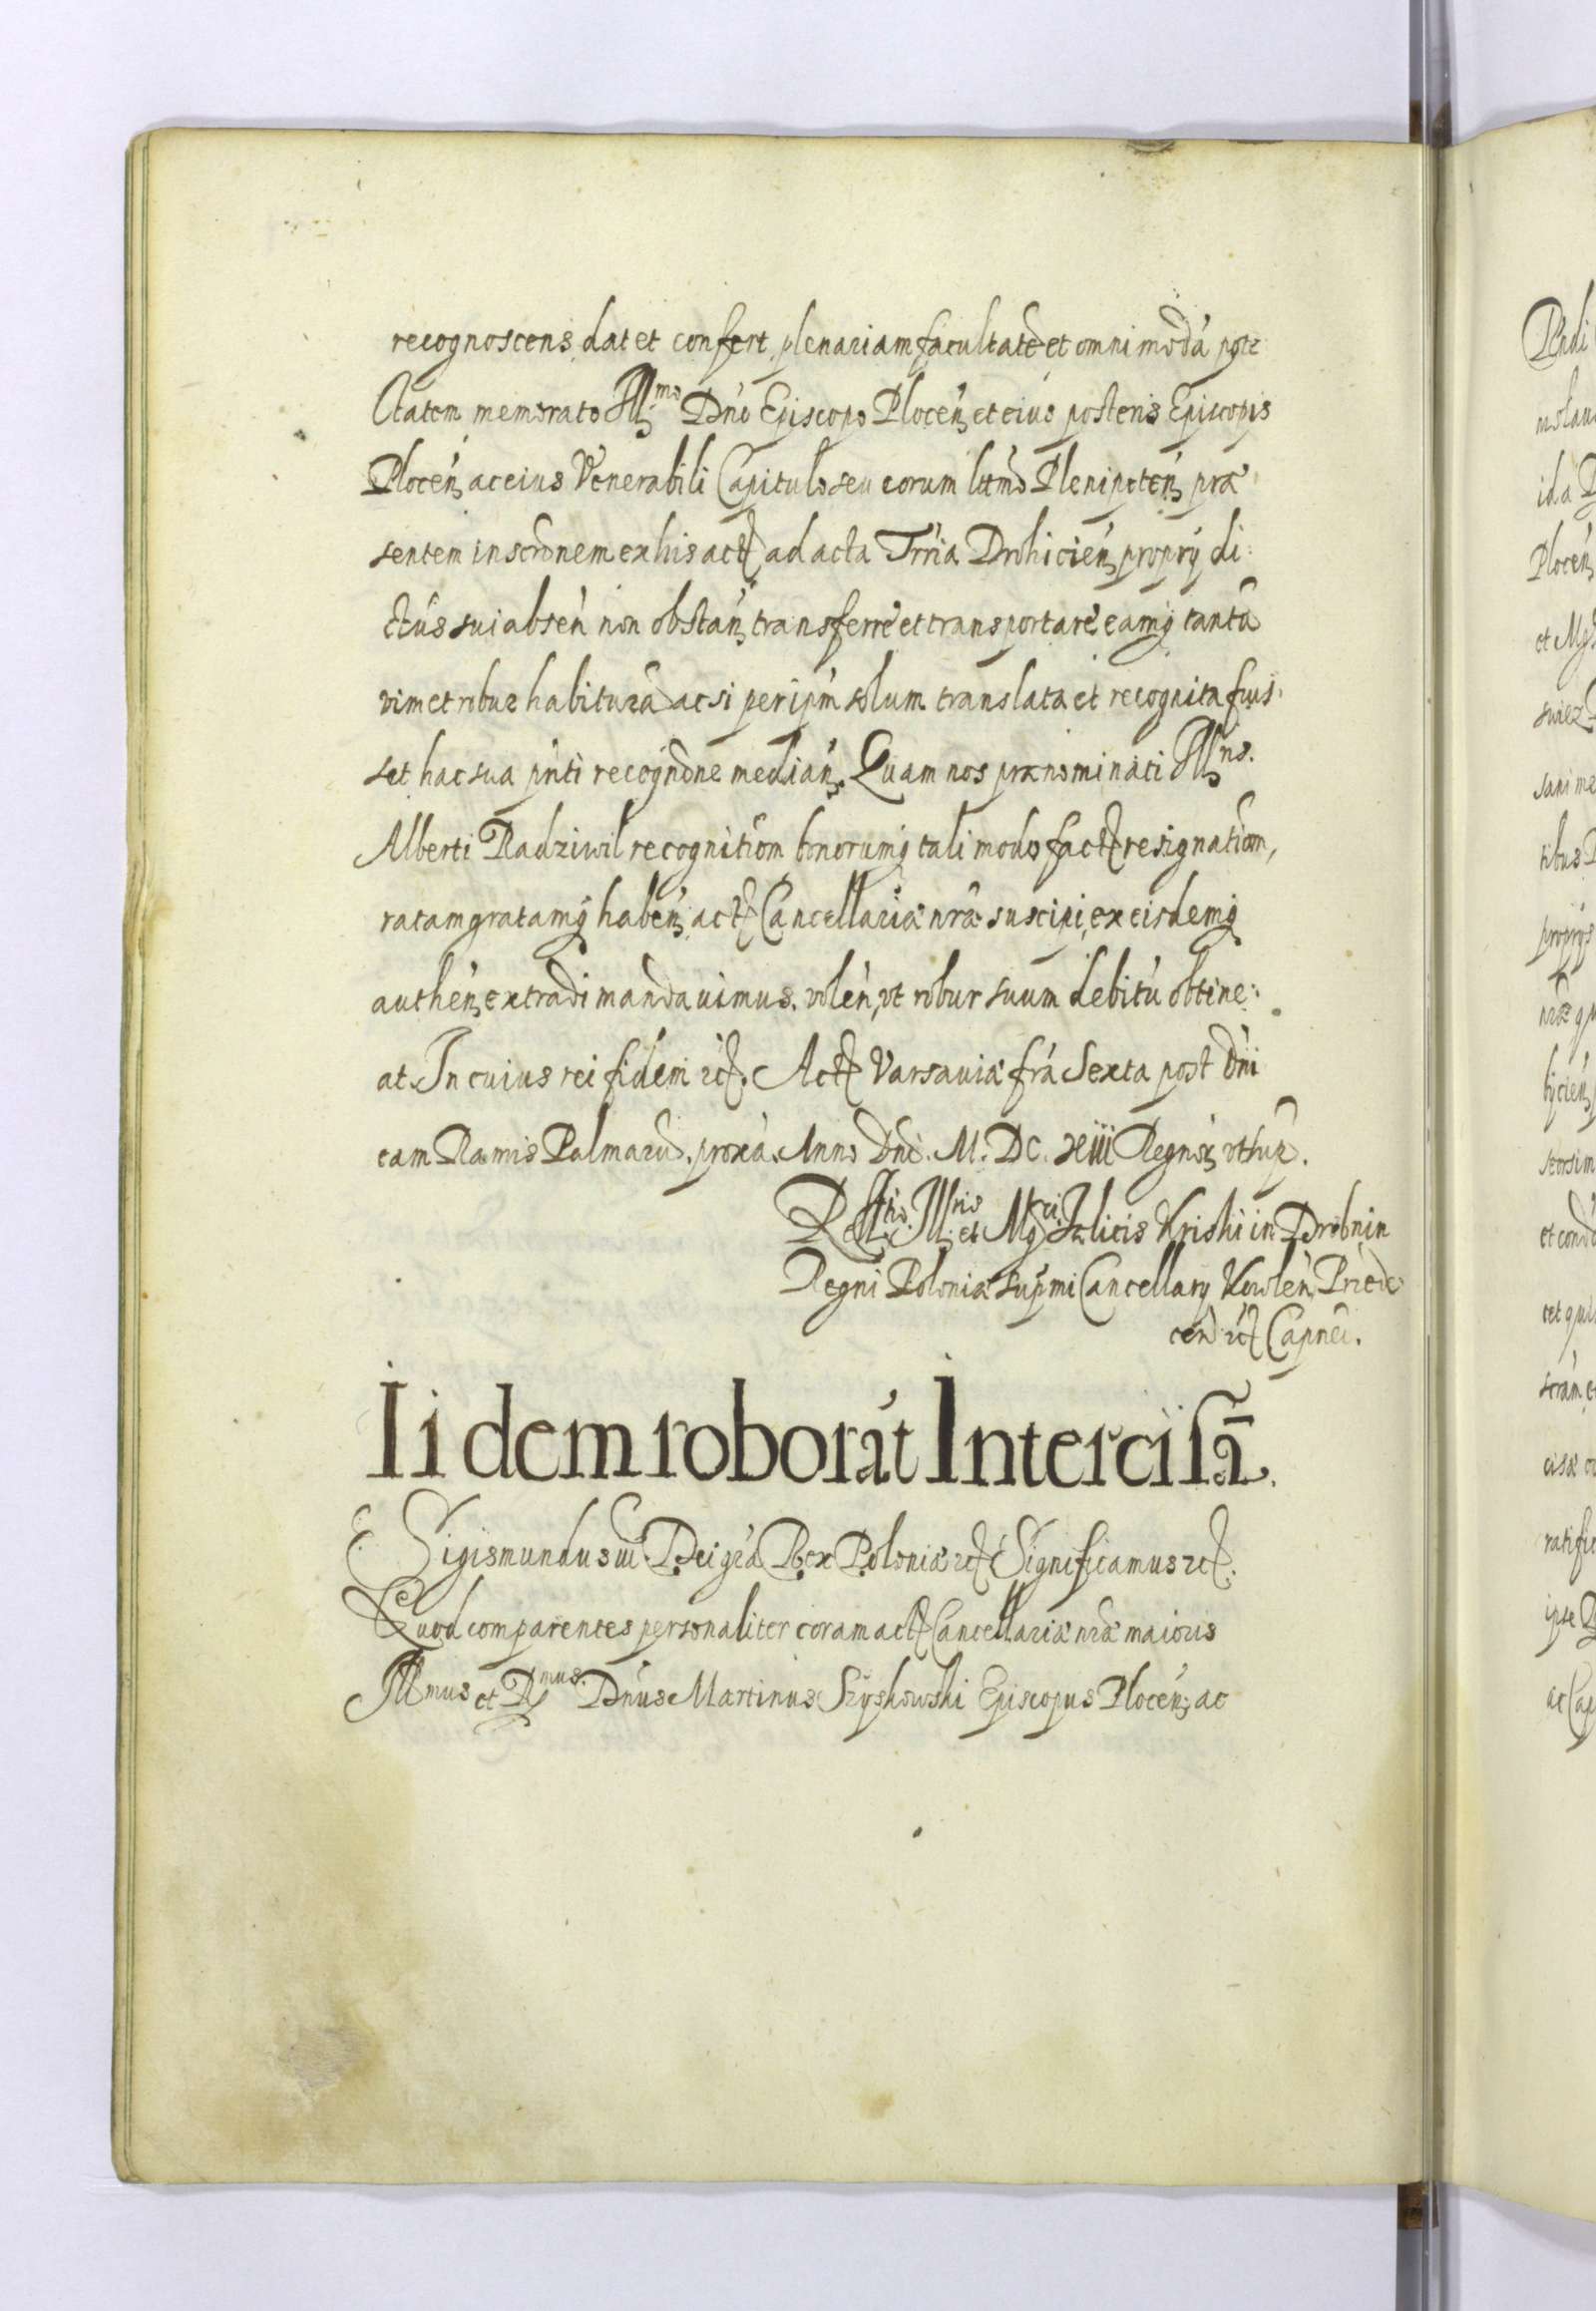 recognoscens dat et confert plenariam facultatē et omnimodā potes
ctatem memorato Illmo Dño Episcopo Plocen̄ et eius posteris Episcopis
Plocen̄ ac eius Venerabili Capitulo seu eorum lttmo Plenipoten̄ præ
sentem inscrōnem ex his actis ad acta Trria Drohicien̄ proprij di:
ctus sui absen̄ non obstan̄ transferre et transportare eamq̨ tantā
vim et robur habiturā ac si per ipm̄ solum translata et recognita fuis:
set hac sua pn̄ti recogn̄one median̄. Quam nos prænominati Illns.
Alberti Radziwil recognitiōm bonorumq̨ tali modo fact resignatiōm,
ratam gratamq̨ haben̄ act Cancellariæ nr̄æ suscipi, ex eisdemq̨
authen̄ extradi mandauimus. volen̄, vt robur suum debitū obtine:
at. In cuius rei fidem etc. Act Varsauiæ fr̄a Sexta post Dn̄i
cam Ramis Palmarū. proxā. Anno Dn̄i. M. DC. xiii Regnor̄ vt sup.
Rltio. Illris et Mgci Felicis Kriski in Drobnin
Regni Poloniæ supmi Cancellarij Kowlen̄ Przede
cen̄ etc Capnei.
Iidem roborāt Intercisā.
Sigismundus iii Dei grā Rex Poloniæ etc Significamus etc.
Quod comparentes personaliter coram act Cancellariæ nr̄æ maioris
Illmus et Rmus. Dn̄us Martinus Szyskowski Episcopus Plocen̄ ac